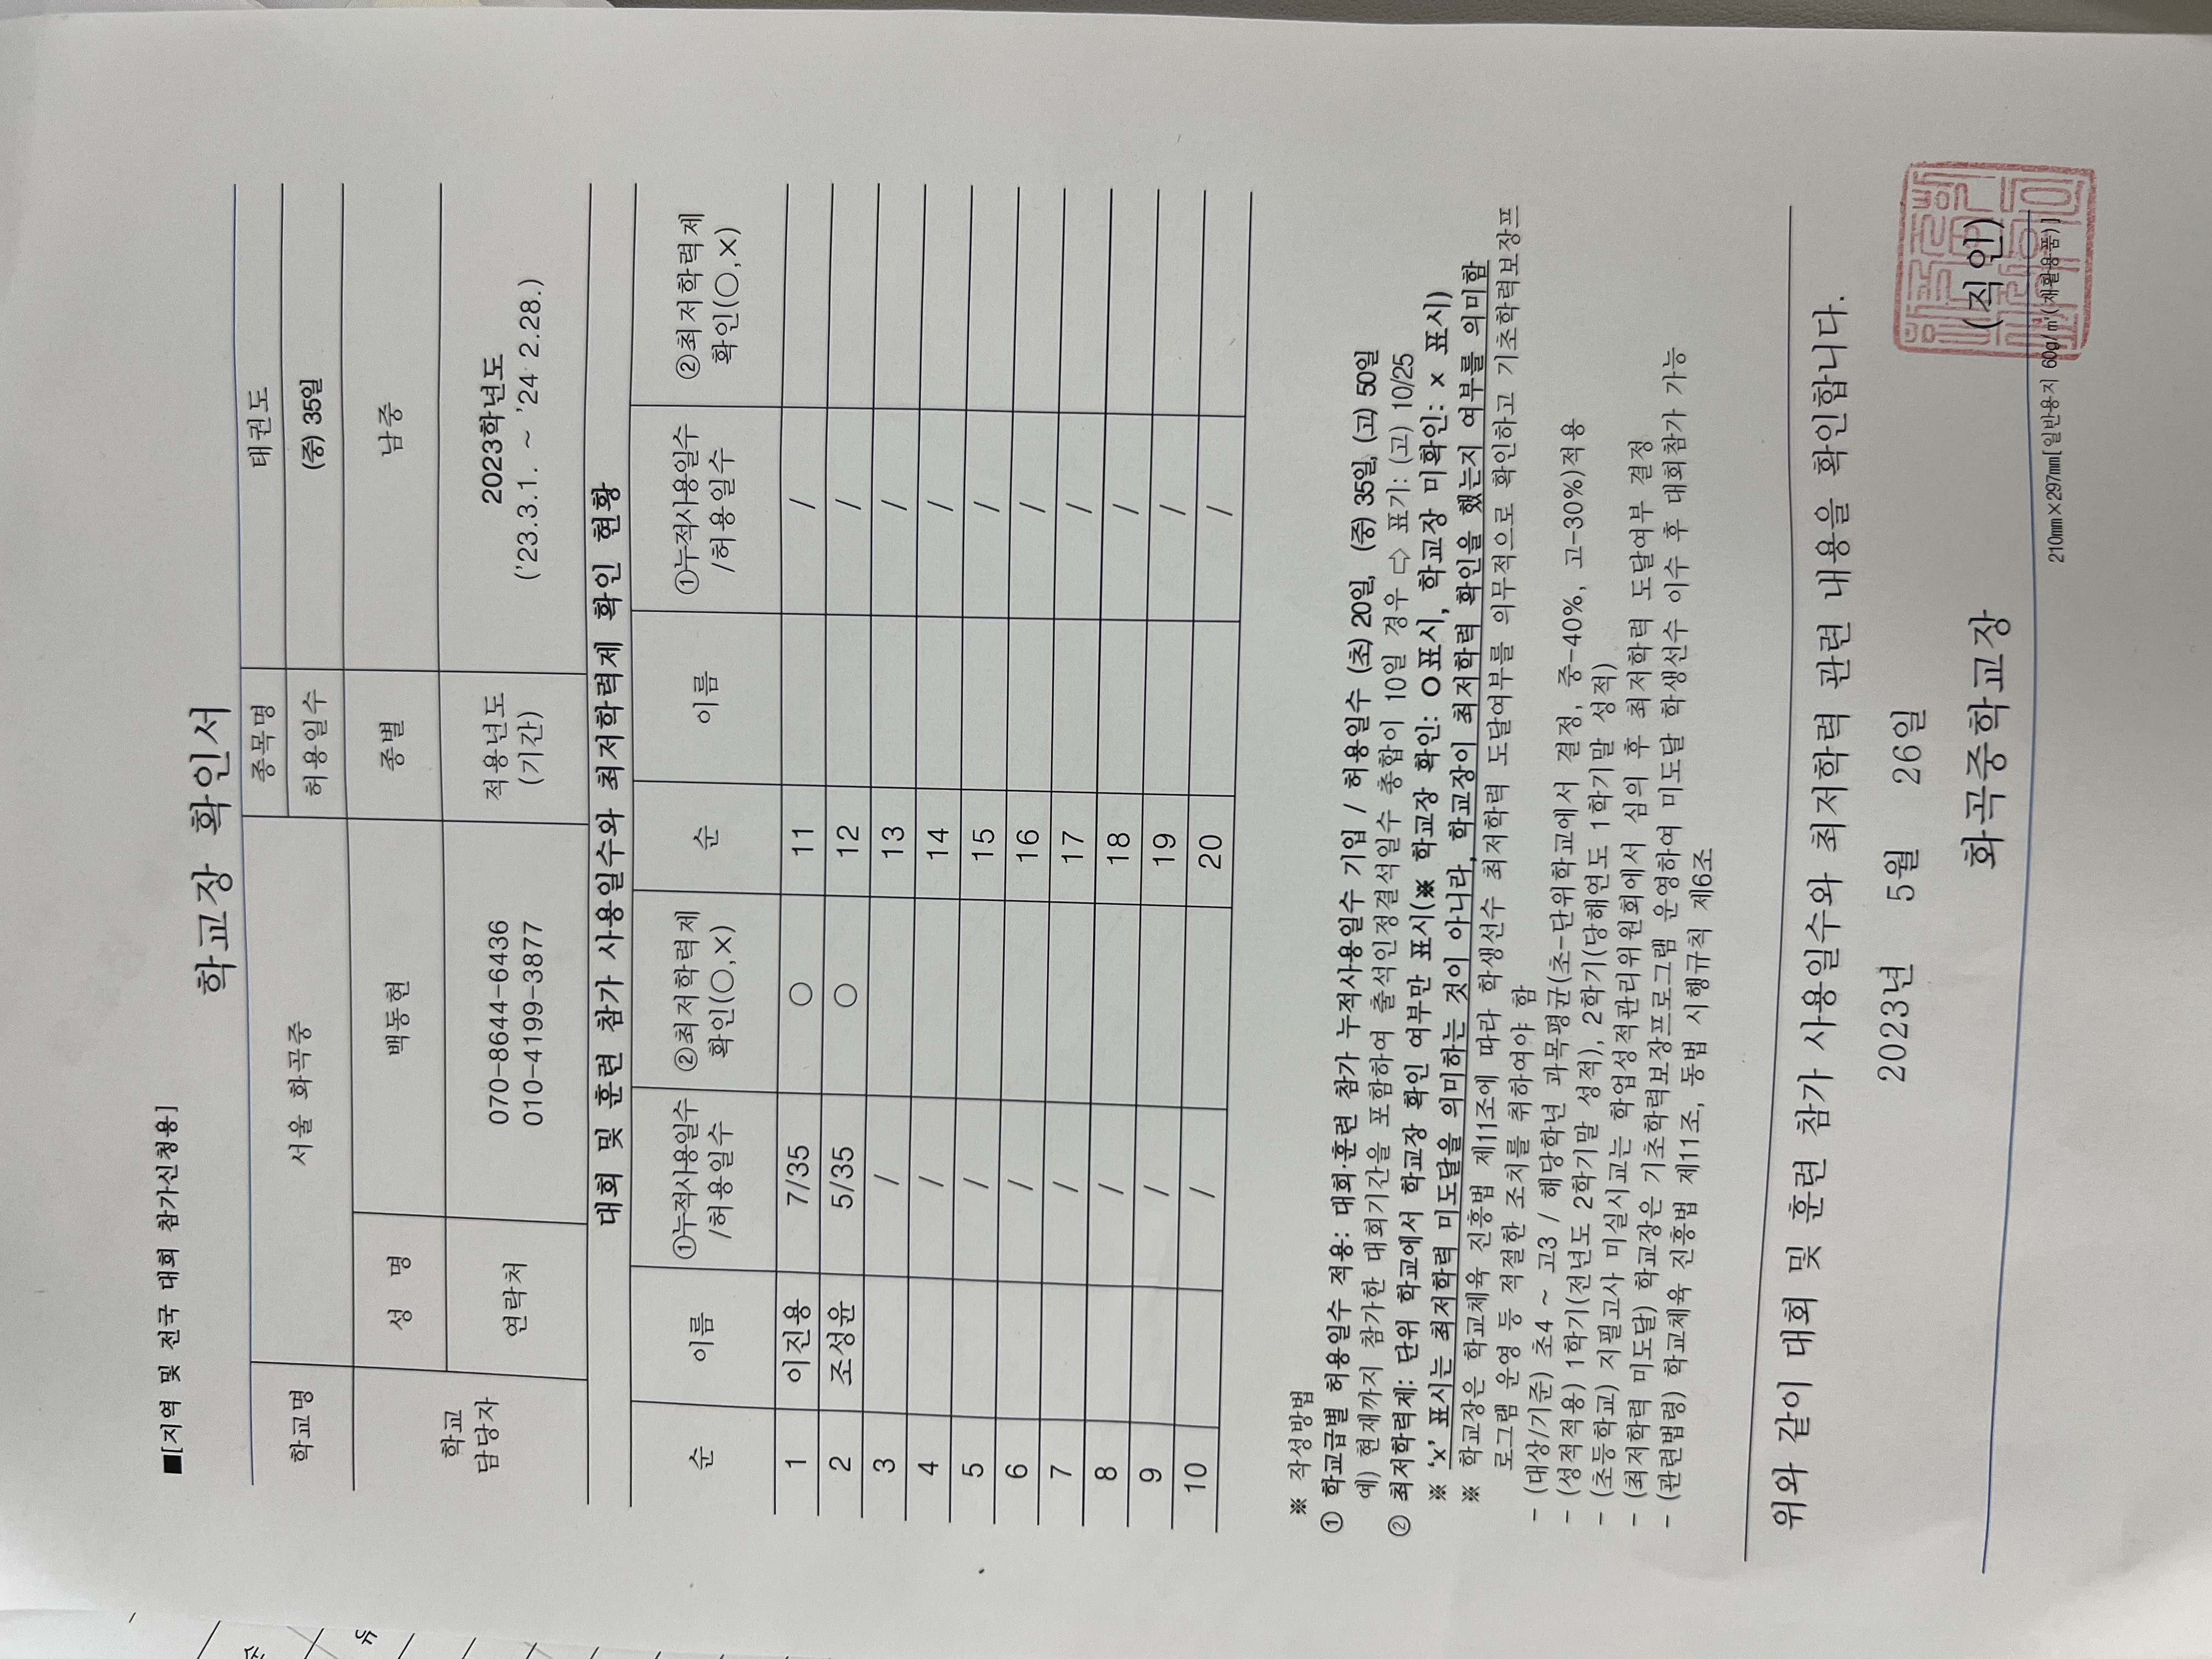 ■[지역 및 전국 대회 참가신청용]
학교장 확인서
학교명 서울 화곡중 종목명 태권도
허용일수 (중) 35일
학교
담당자
성 명 백동현 종별 남중
연락처 070-8644-6436
010-4199-3877
적용년도
(기간)
2023학년도
('23.3.1. ~ '24. 2.28.)
대회 및 훈련 참가 사용일수와 최저학력제 확인 현황
순 이름 ①누적사용일수
/허용일수 ②최저학력제
확인(○,×) 순 이름 ①누적사용일수
/허용일수 ②최저학력제
확인(○,×)
1 이진용 7/35 ○ 11 /
2 조성윤 5/35 ○ 12 /
3 / 13 /
4 / 14 /
5 / 15 /
6 / 16 /
7 / 17 /
8 / 18 /
9 / 19 /
10 / 20 /
※ 작성방법
① 학교급별 허용일수 적용: 대회·훈련 참가 누적사용일수 기입 / 허용일수 (초) 20일, (중) 35일, (고) 50일
예) 현재까지 참가한 대회기간을 포함하여 출석인정결석일수 총합이 10일 경우 ⇨ 표기: (고) 10/25
② 최저학력제: 단위 학교에서 학교장 확인 여부만 표시(※ 학교장 확인: ○표시, 학교장 미확인: × 표시)
※ '×' 표시는 최저학력 미도달을 의미하는 것이 아니라, 학교장이 최저학력 확인을 했는지 여부를 의미함
※ 학교장은 학교체육 진흥법 제11조에 따라 학생선수 최저학력 도달여부를 의무적으로 확인하고 기초학력보장프
로그램 운영 등 적절한 조치를 취하여야 함
- (대상/기준) 초4 ~ 고3 / 해당학년 과목평균(초-단위학교에서 결정, 중-40%, 고-30%)적용
- (성적적용) 1학기(전년도 2학기말 성적), 2학기(당해연도 1학기말 성적)
- (초등학교) 지필고사 미실시교는 학업성적관리위원회에서 심의 후 최저학력 도달여부 결정
- (최저학력 미도달) 학교장은 기초학력보장프로그램 운영하여 미도달 학생선수 이수 후 대회참가 가능
- (관련법령) 학교체육 진흥법 제11조, 동법 시행규칙 제6조
위와 같이 대회 및 훈련 참가 사용일수와 최저학력 관련 내용을 확인합니다.
2023년 5월 26일
화곡중학교장 (직인)
210㎜×297㎜[일반용지 60g/㎡(재활용품)]